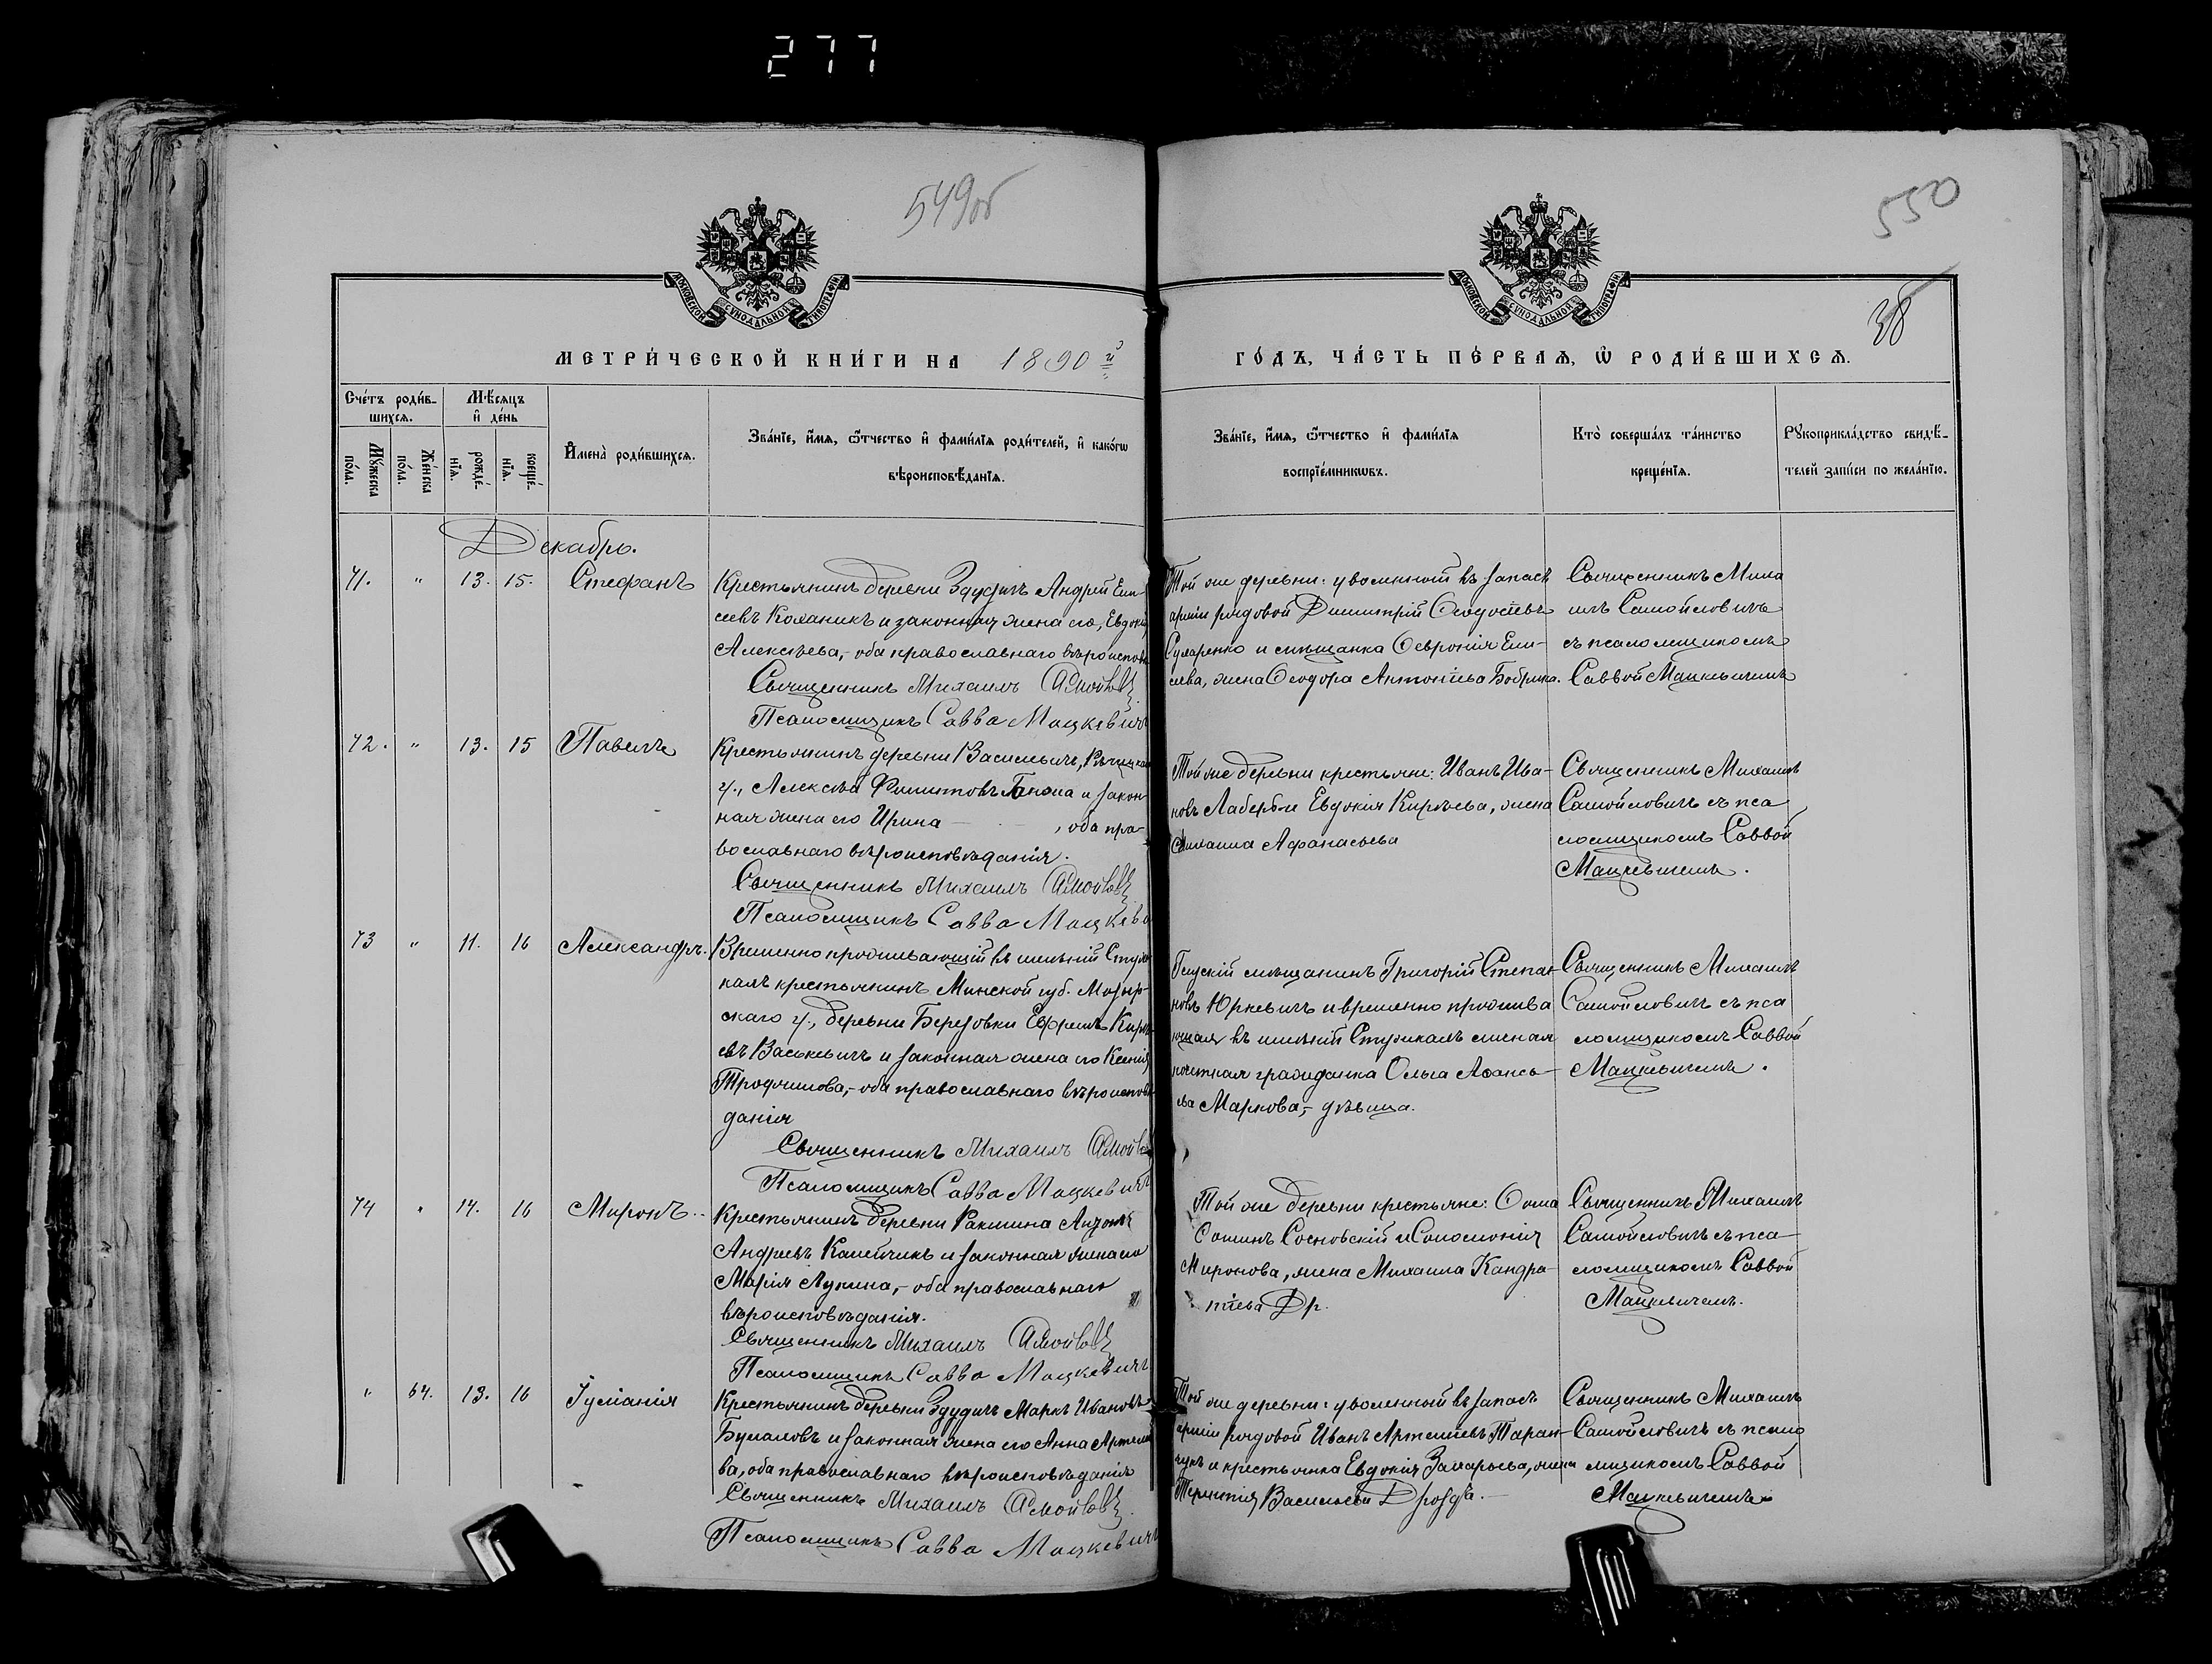 277
549об
550
38
МОСКОВСКОЙ СѴНОДАЛЬНОЙ ТИПОГРАФІИ
МОСКОВСКОЙ СѴНОДАЛЬНОЙ ТИПОГРАФІИ
МЕТРИ́ЧЕСКОЙ КНИ́ГИ НА 1890й
ГО́ДЪ, ЧА́СТЬ ПЕ́РВАѦ, Ѽ РОДИ́ВШИХСѦ.
Сче́тъ роди́в-
шихсѧ.
Мѣ́сѧцъ
и҆ де́нь
Мꙋ́жеска
по́ла.
Же́нска
по́ла.
рожде́-
нїѧ.
креще́-
нїѧ.
И҆мена̀ роди́вшихсѧ.
Зва́нїе, и҆́мѧ, ѻ҆́тчество и҆ фами́лїѧ роди́телей, и҆ како́гѡ
вѣроисповѣ́данїѧ.
Зва́нїе, и҆́мѧ, ѻ҆́тчество и҆ фами́лїѧ
воспрїе́мникѡвъ.
Кто̀ соверша́лъ та́инство
креще́нїѧ.
Рꙋкоприкла́дство свидѣ́-
телей за́писи по жела́нїю.
Декабрь.
71. " 13. 15. Стефанъ
Крестьянинъ деревни Здудичъ Андрей Ели-
сеевъ Коханикъ и законная жена его, Евдокія
Алексѣева,- оба православнаго вѣроиспов
Священникъ Михаилъ Самойлов
Псаломщикъ Савва Мацкевичъ
Той же деревни: уволенный въ запасъ
арміи рядовой Димитрій Ѳеодосіевъ
и мѣщанка Ѳевронія Ели-
сеева, жена Ѳеодора Антоніева Бобрика.
Священникъ Миха
илъ Самойловичъ
съ псаломщикомъ
Саввой Мацкевичемъ
72. " 13. 15 Павелъ
Крестьянинъ деревни Василевичъ, Рѣчицкаго
у., Алексѣй Филиповъ и закон-
ная жена его Ирина , оба пра-
вославнаго вѣроисповѣданія.
Священникъ Михаилъ Самойлов
Псаломщикъ Савва Мацкевич
Той же деревни крестьяне: Иванъ Ива-
новъ и Евдокія Кирѣева, жена
Михаила Афанасьева
Священникъ Михаилъ
Самойловичъ съ пса
ломщикомъ Саввой
Мацкевичемъ.
73 " 11. 16 Александръ.
Временно проживающій въ имѣніи Стуж
кахъ крестьянинъ Минской губ. Мозыр-
скаго у., деревни Березовки Ефремъ Кирѣ-
евъ Васькевичъ и законная жена его Ксенія
Трофимова,- оба православнаго вѣроисповѣ
данія
Священникъ Михаилъ Самойлов
Псаломщикъ Савва Мацкевичъ
мѣщанинъ Григорій Степа-
новъ Юркевичъ и временно прожива
ющая въ имѣніи личная
почетная гражданка Ольга Аѳанась-
ева Маркова,- дѣвица.
Священникъ Михаилъ
Самойловичъ съ пса
ломщикомъ Саввой
Мацкевичемъ.
74 " 14. 16 Миронъ.
Крестьянинъ деревни Ракшина Антонъ
Андреевъ Капейчикъ и законная жена его
Марія Лукина,- оба православнаго
вѣроисповѣданія.
Священникъ Михаилъ Самойлов
Псаломщикъ Савва Мацкевичъ
Той же деревни крестьяне: Ѳома
Ѳоминъ Сосновскій и Соломонія
Миронова, жена Михаила Кандра-
тіева Др.
Священникъ Михаилъ
Самойловичъ съ пса-
ломщикомъ Саввой
Мацкевичемъ.
" 64. 13. 16 Іуліанія
Крестьянинъ деревни Здудичъ Маркъ Ивановъ
и законная жена его Анна Артеміе
ва, оба православнаго вѣроисповѣданія
Священникъ Михаилъ Самойлов
Псаломщикъ Савва Мацкевичъ
Той же деревни: уволенный въ запасъ
арміи рядовой Иванъ Артеміевъ Таран-
чукъ и крестьянка Евдокія Захарьева, жена
Терентія Васильева Дрозда.
Священникъ Михаилъ
Самойловичъ съ псало
мщикомъ Саввой
Мацкевичемъ